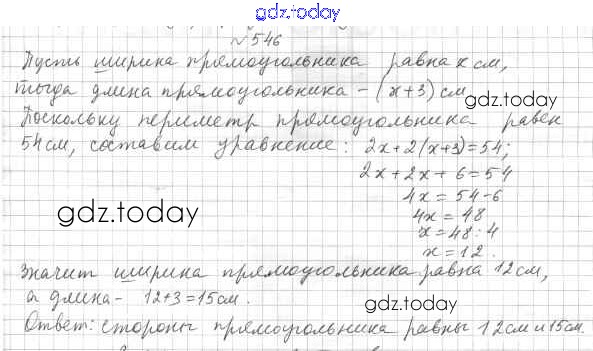 gdz.today
№546
Пусть ширина прямоугольника равна x см,
тогда длина прямоугольника - (x+3) см
gdz.today
Поскольку периметр прямоугольника равен
54 см, составим уравнение: 2x+2(x+3)=54;
2x+2x+6=54
4x = 54-6
gdz.today
4x = 48
x = 48:4
x = 12.
Значит ширина прямоугольника равна 12см,
а длина - 12+3=15см.
gdz.today
Ответ: стороны прямоугольника равны 12см и 15см.